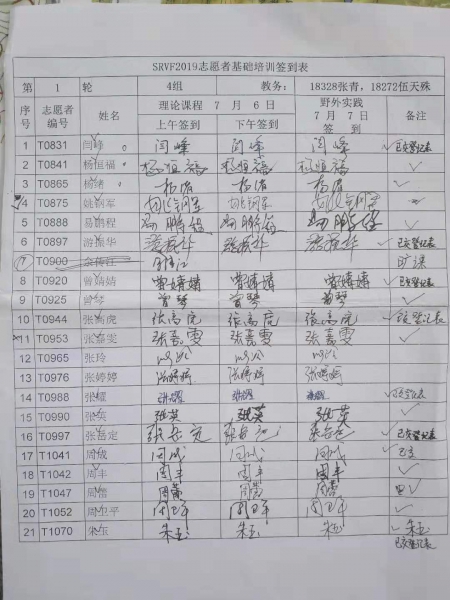 SRVF2019志愿者基础培训签到表
第 1 轮 4组 教务： 18328张青，18272伍天殊
序号 志愿者编号 姓名 理论课程 7 月 6 日 野外实践 7 月 7 日 备注
上午签到 下午签到 签 到
1 T0831 闫峰 闫峰 闫峰 闫峰 已交登记表
2 T0841 杨恒福 杨恒福 杨恒福 杨恒福
3 T0865 杨绪 杨绪 杨绪 杨绪
4 T0875 军
5 T0888 易鹏程
6 T0897 游振华 已交登记表
7 T0900 旷课
8 T0920 曾婧婧 曾婧婧 曾婧婧 曾婧婧 已交登记表
9 T0925 曾琴 曾琴 曾琴 曾琴
10 T0944 张高虎 张高虎 张高虎 张高虎 已交登记表
11 T0953 张嘉雯 张嘉雯 张嘉雯 张嘉雯
12 T0965 张玲
13 T0976 张婷婷 张婷婷 张婷婷 张婷婷
14 T0988 张耀 张耀 张耀 张耀 已交登记表
15 T0990 张英 张英 张英 张英
16 T0997 张岳定 张岳定 张岳定 张岳定 已交登记表
17 T1041 周成 周成 周成 周成 已交
18 T1042 周丰 周丰 周丰 周丰
19 T1047 周蕾 周蕾 周蕾 周蕾
20 T1052 周卫平
21 T1070 朱玉 朱玉 朱玉 朱玉 朱玉
已交登记表